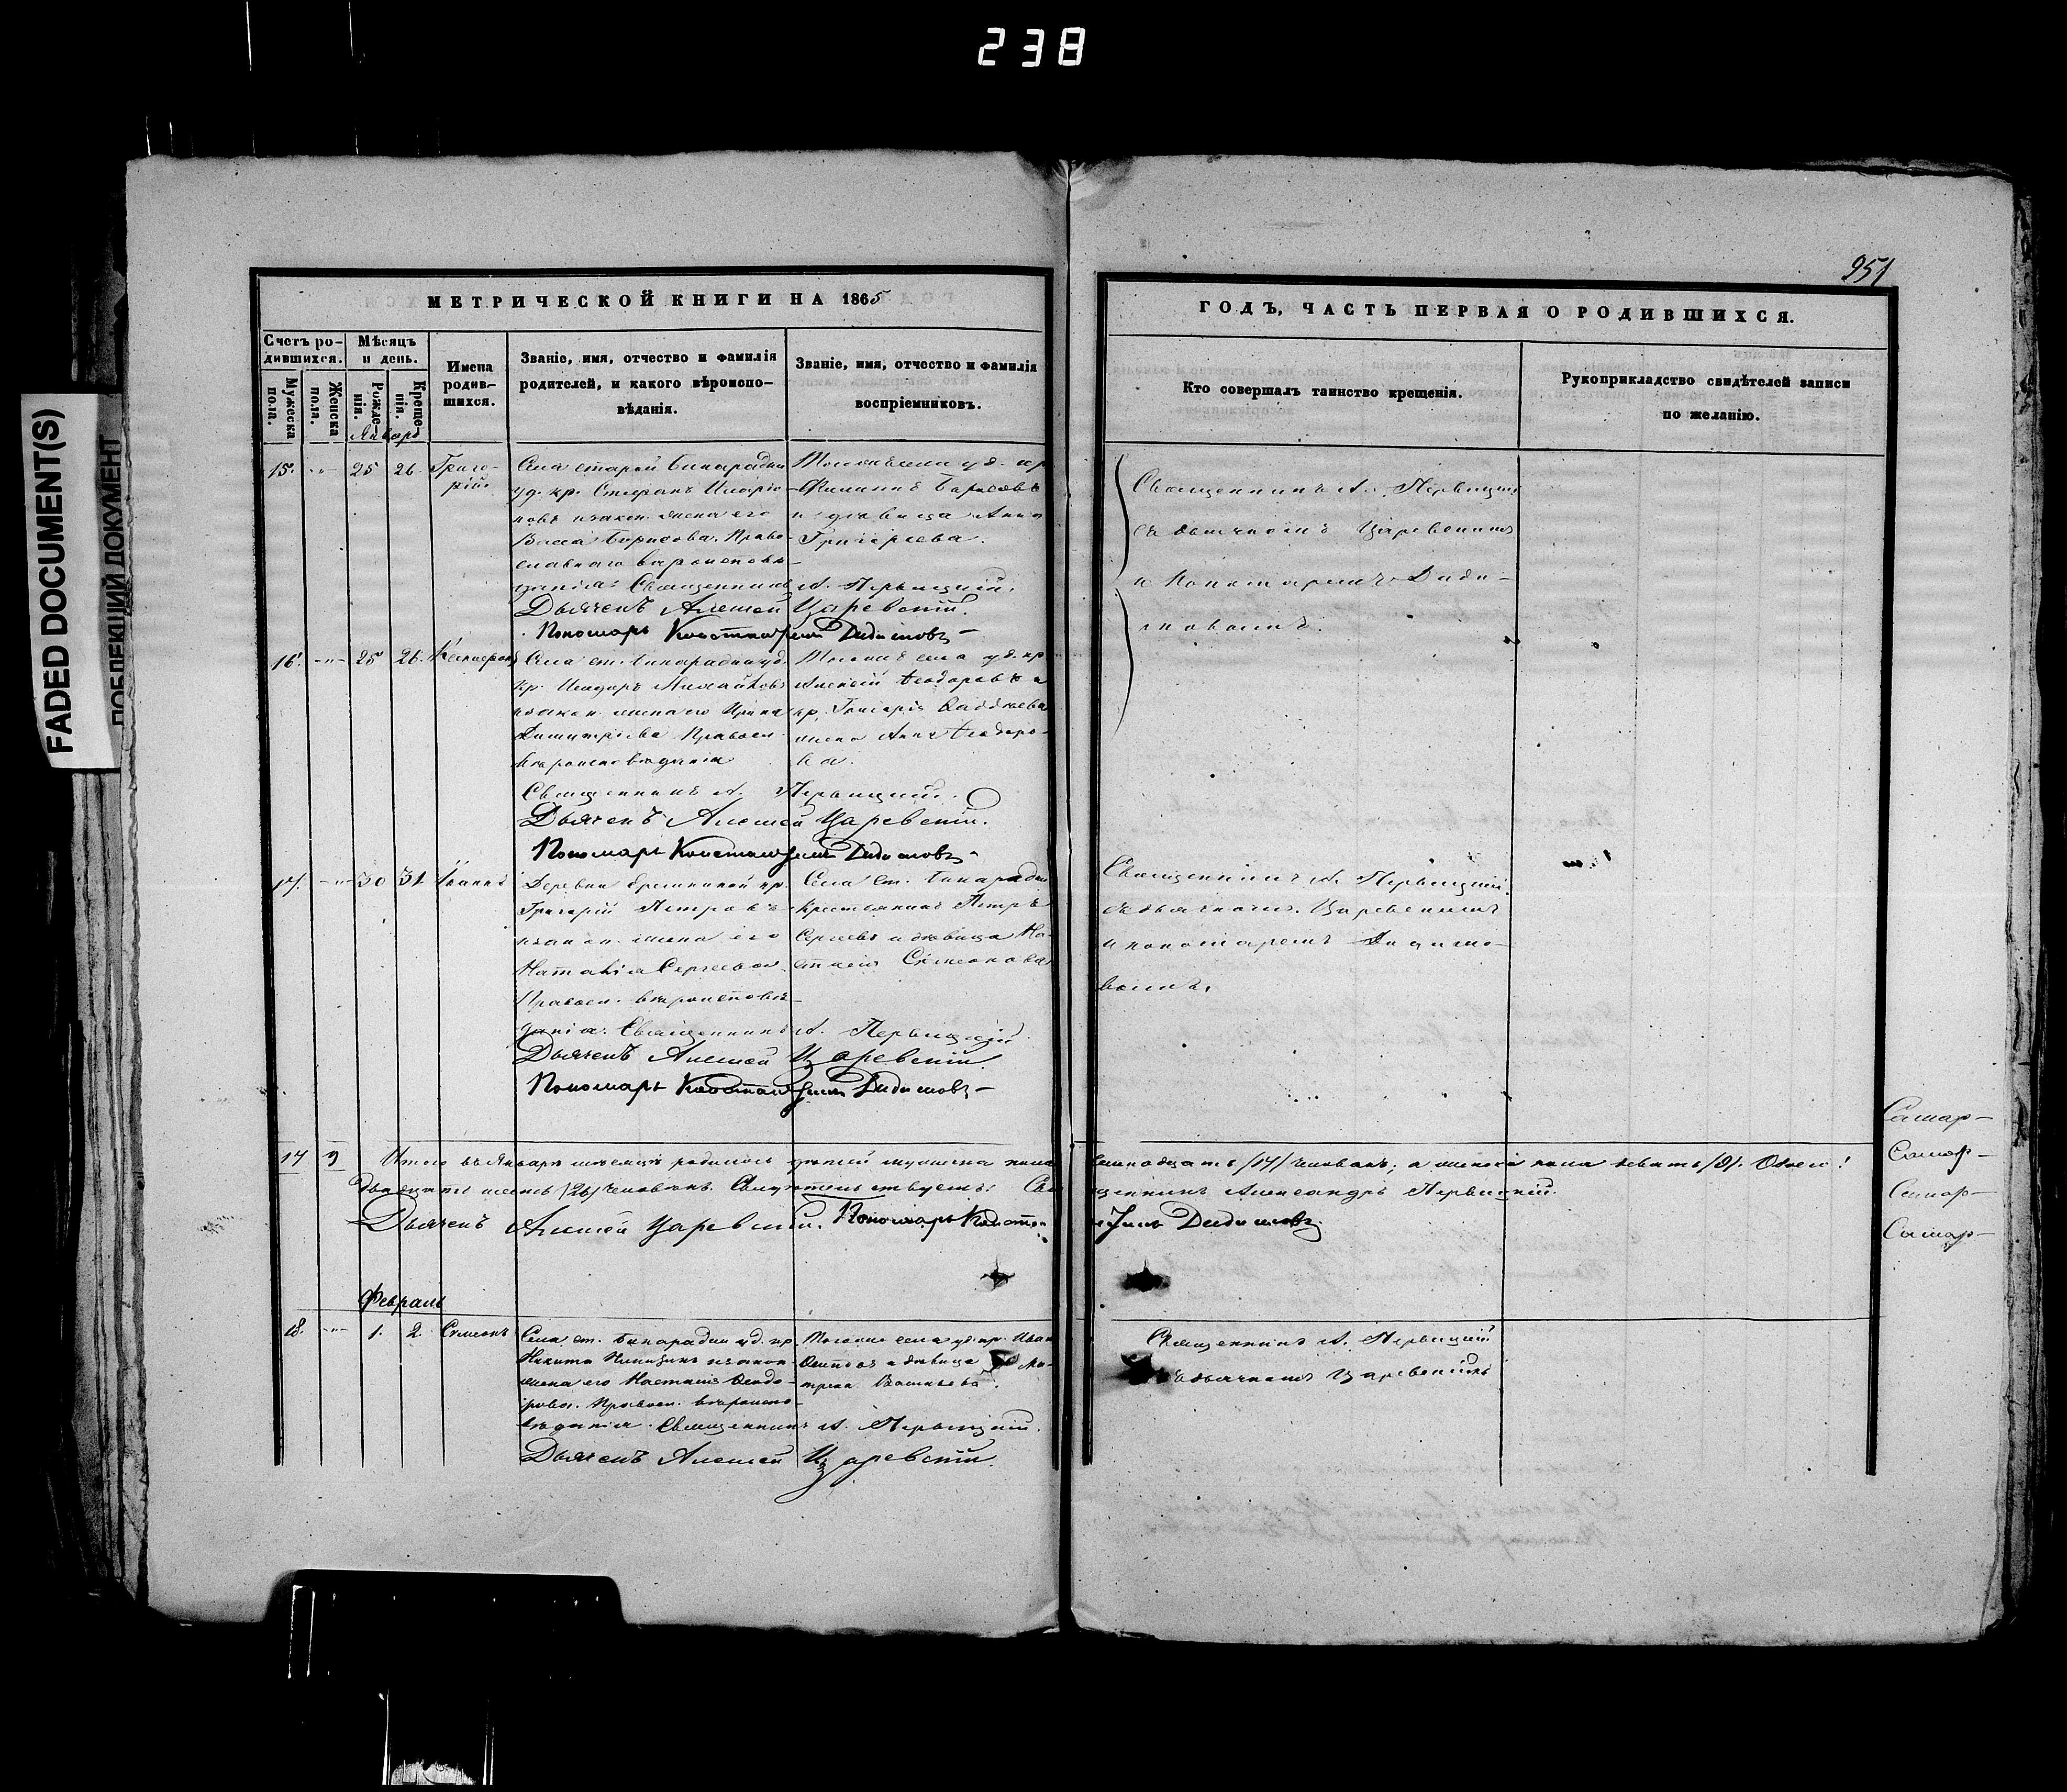 238
FADED DOCUMENT(S)
ПОБЛЕКЩИЙ ДОКУМЕНТ
951
МЕТРИЧЕСКОЙ КНИГИ НА 1865
ГОДЪ, ЧАСТЬ ПЕРВАЯ О РОДИВШИХСЯ.
Счетъ родившихся.
Мужеска пола.
Женска пола.
Мѣсяцъ и день.
Рожденія.
Крещенія.
Имена родившихся.
Званіе, имя, отчество и фамилія
родителей, и какого вѣроиспо-
вѣданія.
Званіе, имя, отчество и фамилія
воспріемниковъ.
Кто совершалъ таинство крещенія.
Рукоприкладство свидѣтелей записи
по желанію.
Январь
15. 25 26. Григо-
рій.
Села старой Бинарадки
уд. кр. Стефанъ
жена его
Васса Борисова. Право-
славнаго вѣроисповѣ-
данія. Священникъ А. Первицкій.
Дьячекъ Алексей Царевскій.
Пономарь Константинъ Дидимовъ
Филиппъ Борисовъ
и дѣвица Анна
Григорьева.
Священникъ А. Первицкій
съ дьячкомъ Царевскимъ
и Пономаремъ Диди-
мовымъ.
16. 25 26.
Села ст. Бинарадки уд.
кр.
жена его Ирина
Димитріева Правосл.
вѣроисповѣданія
Священникъ А. Первицкій.
Дьячекъ Алексей Царевскій.
Пономарь Константинъ Дидимовъ
Тогожъ села уд. кр.
Алексей Ѳеодоровъ и
кр. Григорія
жена Анна Ѳеодоро-
ва.
17. 30 31 Іоаннъ
Деревни кр.
Григорій Петровъ
и закон. жена его
Наталія Сергеева
Правосл. вѣроисповѣ-
данія. Священникъ А. Первицкій
Дьячекъ Алексей Царевскій.
Пономарь Константинъ Дидимовъ
Села Ст. Бинарадки
крестьянинъ Петръ
Сергеевъ и дѣвица На-
сталія Симеонова
Священникъ А. Первицкій
съ дьячкомъ Царевскимъ
и пономаремъ Дидимо-
вымъ.
17 9 Итого въ Январѣ месяцѣ родилось детей мужеска пола семнадцать /17/ человекъ; а женска пола девять /9/. Обоего:
двадцать шесть /26/ человекъ. Свидѣтельствуемъ: Священникъ Александръ Первицкій.
Дьячекъ Алексей Царевскій. Пономарь Константинъ Дидимовъ.
Самар-
Самар-
Самар-
Самар-
Февраль
18. 1. 2. Симеонъ
Села ст. Бинарадки уд. кр.
Никита
жена его Настасія Ѳеодо-
рова. Правосл. вѣроиспо-
вѣданія. Священникъ А. Первицкій.
Дьячекъ Алексей Царевскій.
Тогоже села уд. кр. Иван
Осиповъ и дѣвица Ма-
трена Васильева.
Священникъ А. Первицкій
съ дьячкомъ Царевскимъ